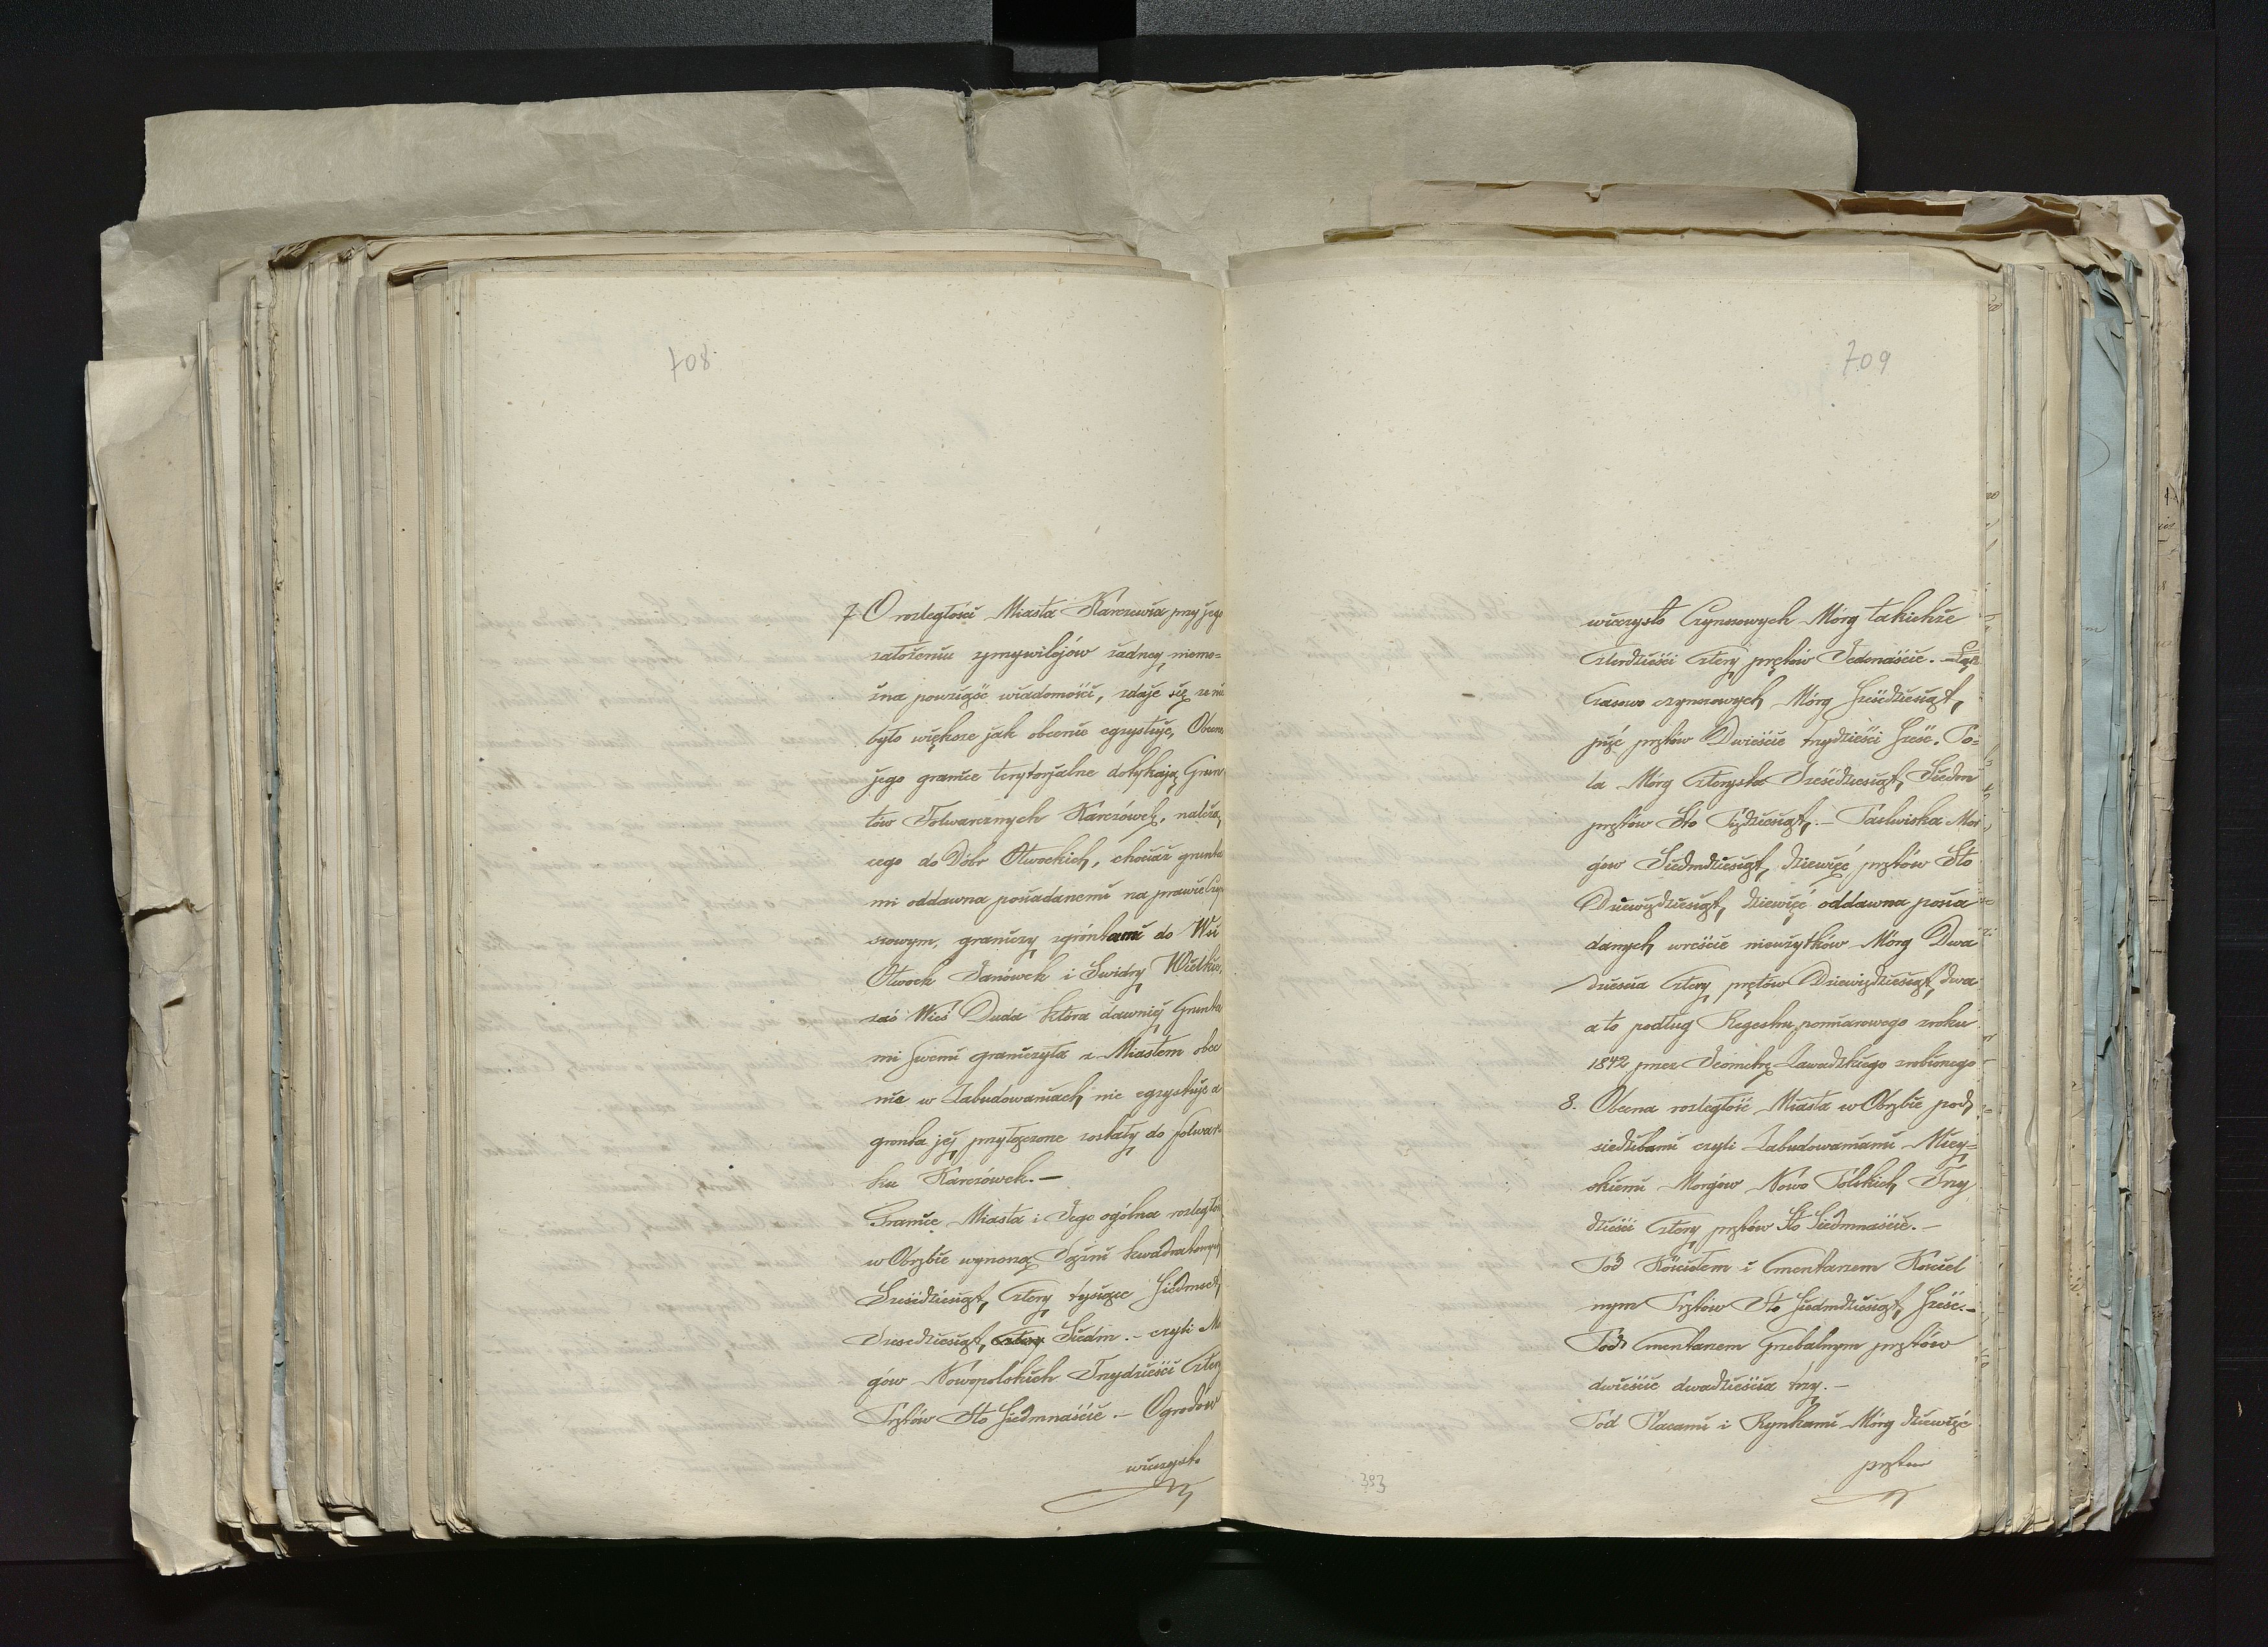 708
7. O rozległości Miasta Karczewia przy jego
założeniu zprzywilejów żadney niemo=
żna powziąść wiadomości, zdaje się że nie
było większe jak obecnie egzystuje, Obecne
jego granice terytorjalne dotykają Grun
tów Folwarcznych Karczówek, należą,
cego do Dóbr Otwockich, chociaż grunta
mi oddawna posiadanemi na prawie Czyn
szowym, graniczy zgróntami do Wsi
Otwock Janówek i Swidry Wielkie,
zaś Wieś Duda która dawniéj Grunta
mi swemi graniczyła z Miastem obec
nie w Zabudowaniach nie egzystuje a
gronta jéj przyłączone zostały do folwar=
ku Karczówek. —
Granice Miasta i Jego ogólna rozległość
w Obrębie wynoszą Sążni kwadratowych
Sześćdziesiąt, cztery tysiące Siedmset,
Szesdziesiąt, cztery Siedm. — czyli Mo
gów Nowopolskich Trzydzieści Cztery
Prętów Sto Siedmnaście. — Ogrodów
wieczysto
709
wieczysto Czynszowych Mórg takichże
Czterdzieści Cztery prętów Jedenaście. — Łąk
Czasowo czynszowych Mórg Sześćdziesiąt,
pięć prętów Dwieście trzydzieści Sześć. Po=
la Mórg Czterysta Sześćdziesiąt, Siedm
prętów Sto Pięćdziesiąt, — Pastwiska Mor
gów Siedmdziesiąt, dziewięć prętów Sto
Dziewięćdziesiąt, dziewięć oddawna posia
danych wreście nieużytków Mórg Dwa
dzieścia Cztery prętów Dziewięćdziesiąt, dwa
a to podług Regestru pomiarowego zroku
1842 przez Jeometrę Zawadzkiego zrobionego
8. Obecna rozległość Miasta w Obrębie pod,
siedzibami czyli Zabudowaniami Miey=
skiemi Morgów Nowo Polskich Trzy
dzieści Cztery prętów Sto Siedmnaście. —
Pod Kościołem i Cmentarzem Kościel
nym Prętów Sto Siedmdziesiąt, Sześć. —
Pod Cmentarzem Grzebalnym prętów
dwieście dwadzieścia trzy. —
Pod Placami i Rynkami Mórg dziewięć
prętów
383